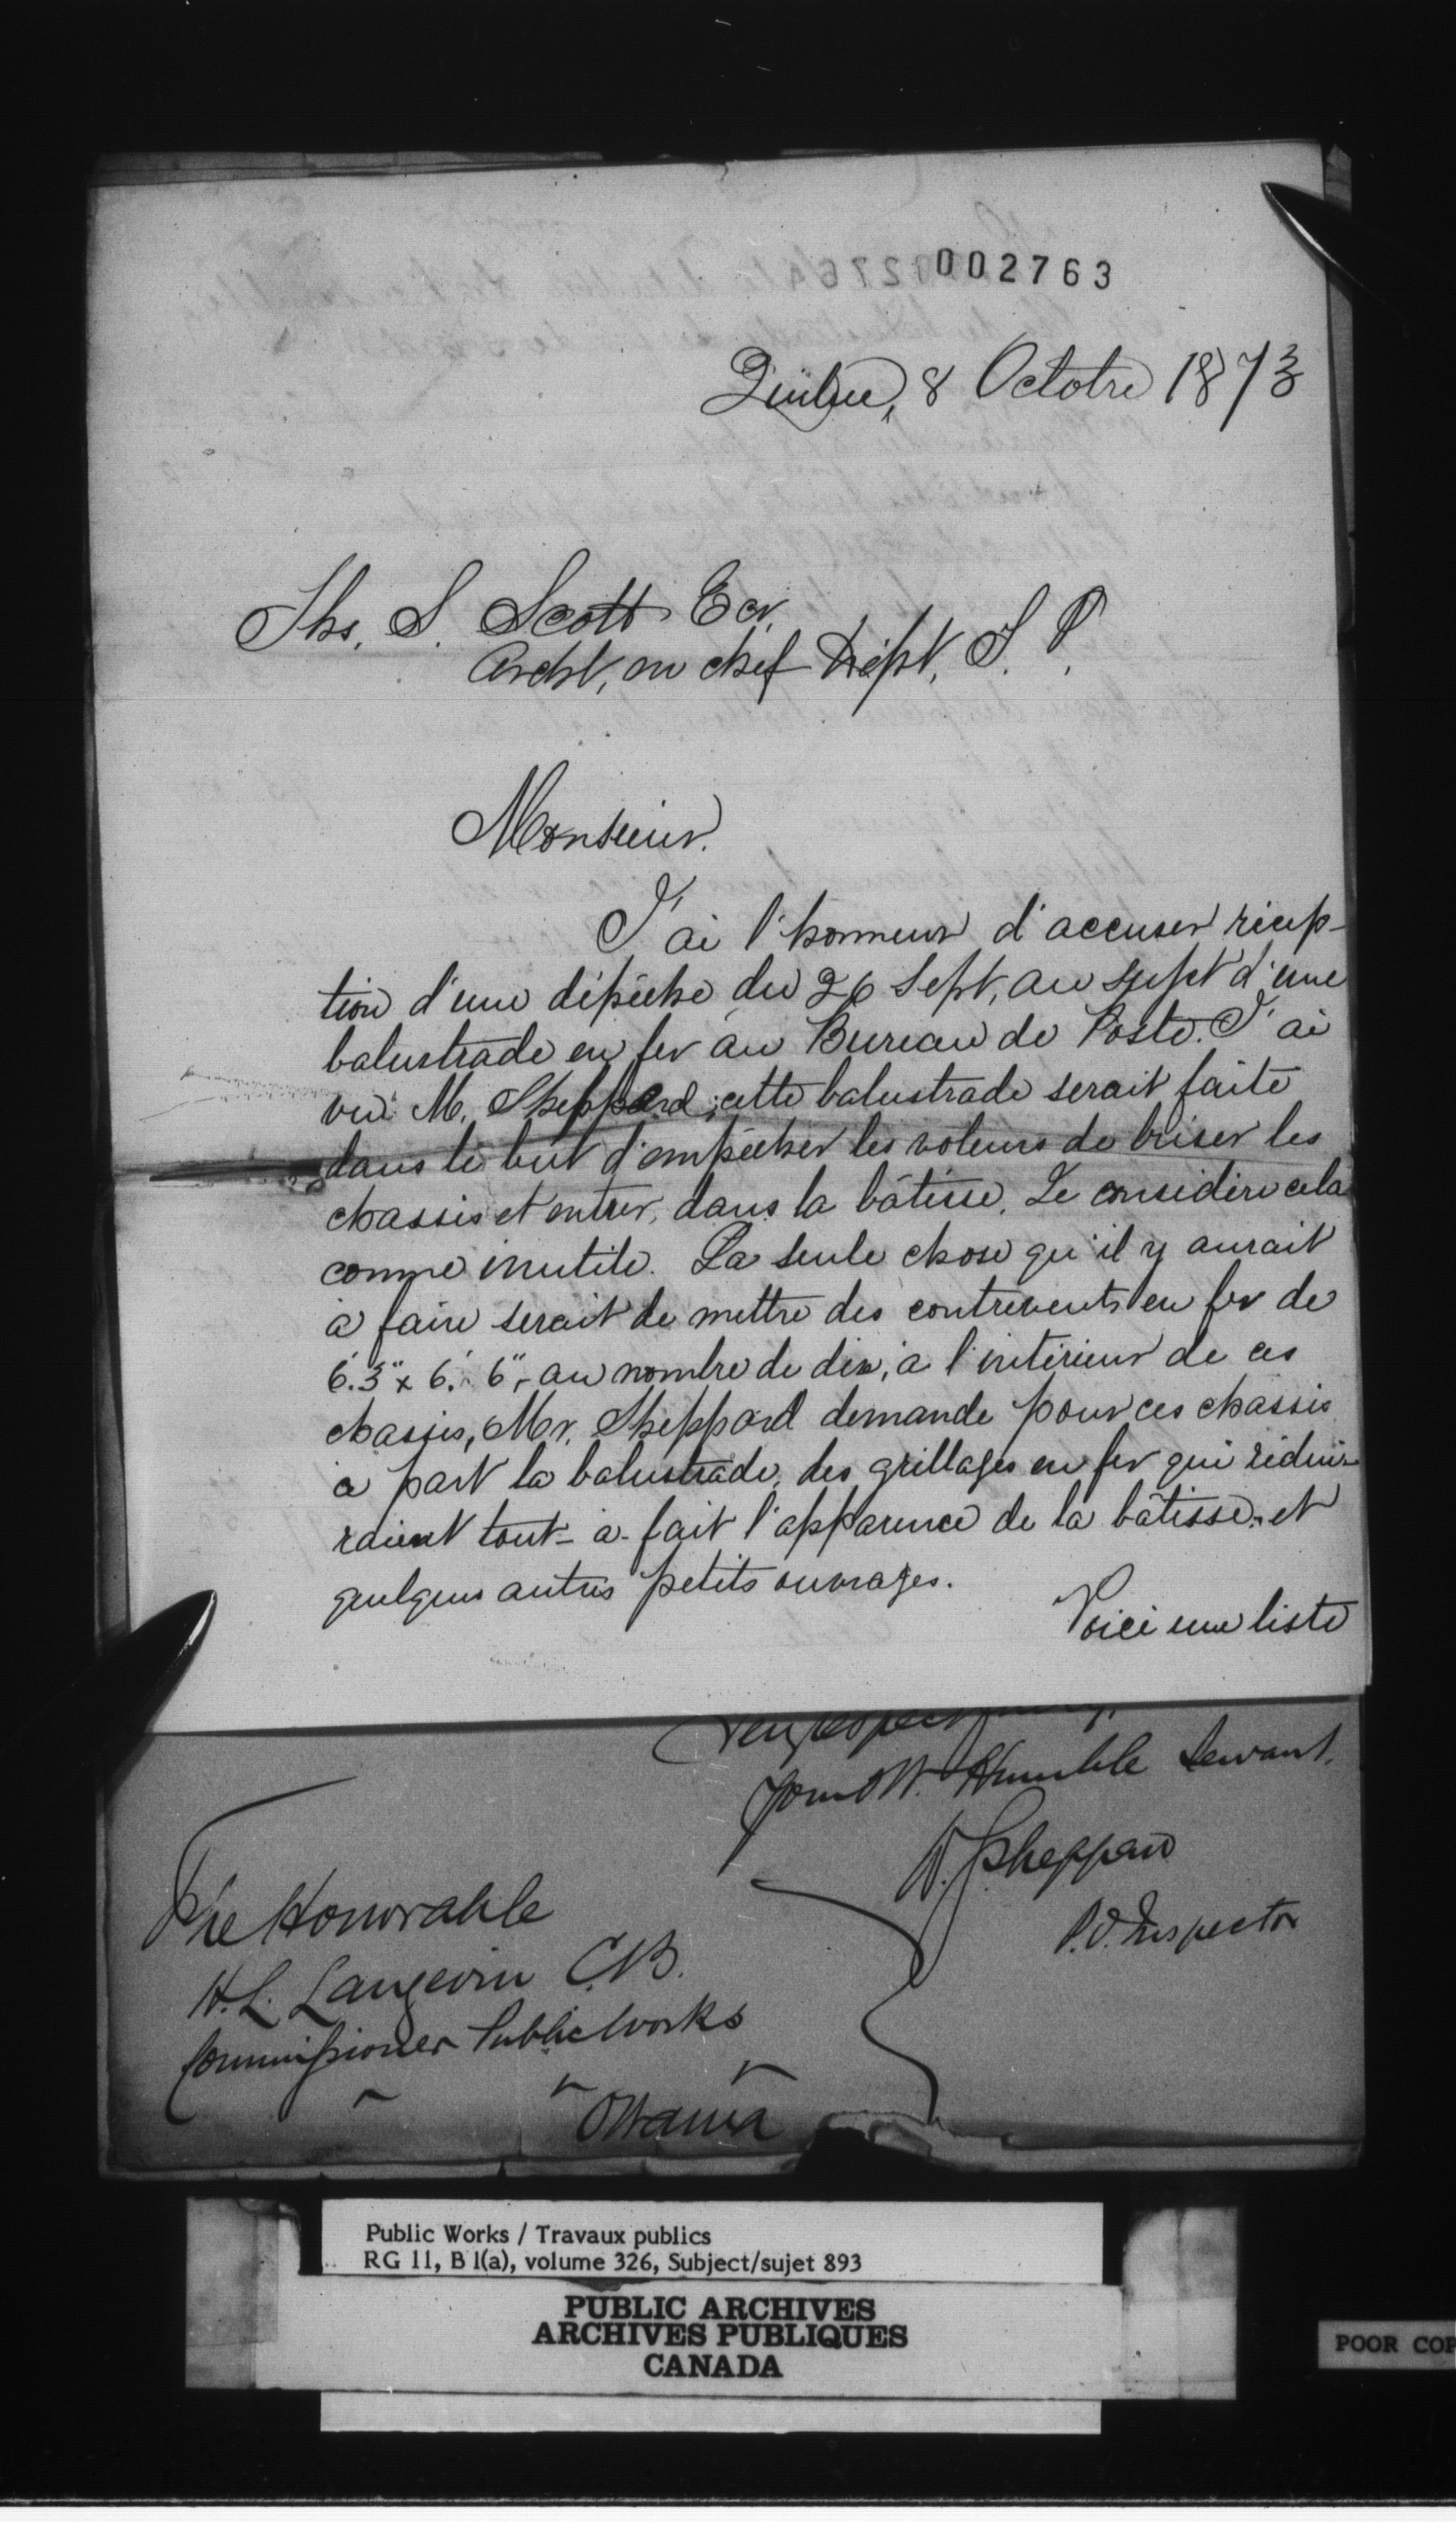 002763
Québec, 8 Octobre 1873
Ths. S. Scott Ecr.
Archt. en chef Dépt. T. P.
Monsieur.
J'ai l'honneur d'accuser récep-
tion d'une dépêche du 26 Sept, au sujet d'une
balustrade en fer au Bureau de Poste. J'ai
vu M. Sheppard; cette balustrade serait faite
dans le but d'empêcher les voleurs de briser les
chassis et entrer, dans la bâtisse. Je considère cela
comme inutile. La seule chose qu'il y aurait
à faire serait de mettre des contrevents en fer de
6.'3" x 6.' 6", au nombre de dix, à l'intérieur de ces
chassis, Mr. Sheppard demande pour ces chassis
à part la balustrade, des grillages en fer qui rédui-
raient tout-à-fait l'apparence de la bâtisse, et
quelques autres petits ouvrages.
Voici une liste
Very respectfully,
Your Ob. Humble Servant.
W. Sheppard
P.O. Inspector
The Honorable
H. L. Langevin C.B.
Commissioner Public Works
Ottawa
Public Works / Travaux publics
RG 11, B 1(a), volume 326, Subject/sujet 893
PUBLIC ARCHIVES
ARCHIVES PUBLIQUES
CANADA
POOR COP